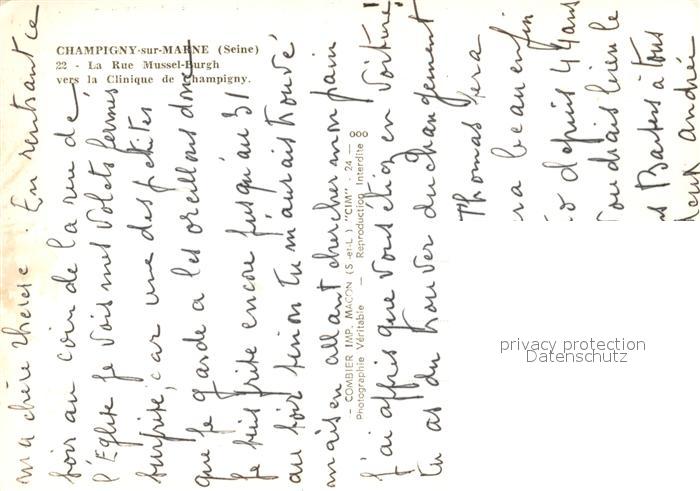 CHAMPIGNY-sur-MARNE (Seine)
22 - La Rue Mussel-Burgh
vers la Clinique de Champigny.
ma chère Thérèse. En rentrant ce
soir au coin de la rue de
l'Eglise je vois mes volets fermés
surprise, car une des petites
que je garde a les oreillons donc
je suis frite encore jusqu'au 31
au soir sinon tu m'aurais trouvé
mais en allant chercher mon pain
j'ai appris que vous étiez en voiture!
tu as du trouver du changement
Thomas sera
ra beau enfin
depuis 44 ans
voudrais bien le
Basers à tous
André
- COMBIER IMP. MACON (S-et-L.) "CIM" - 24 - 000
Photographie Véritable - Reproduction Interdite
privacy protection
Datenschutz